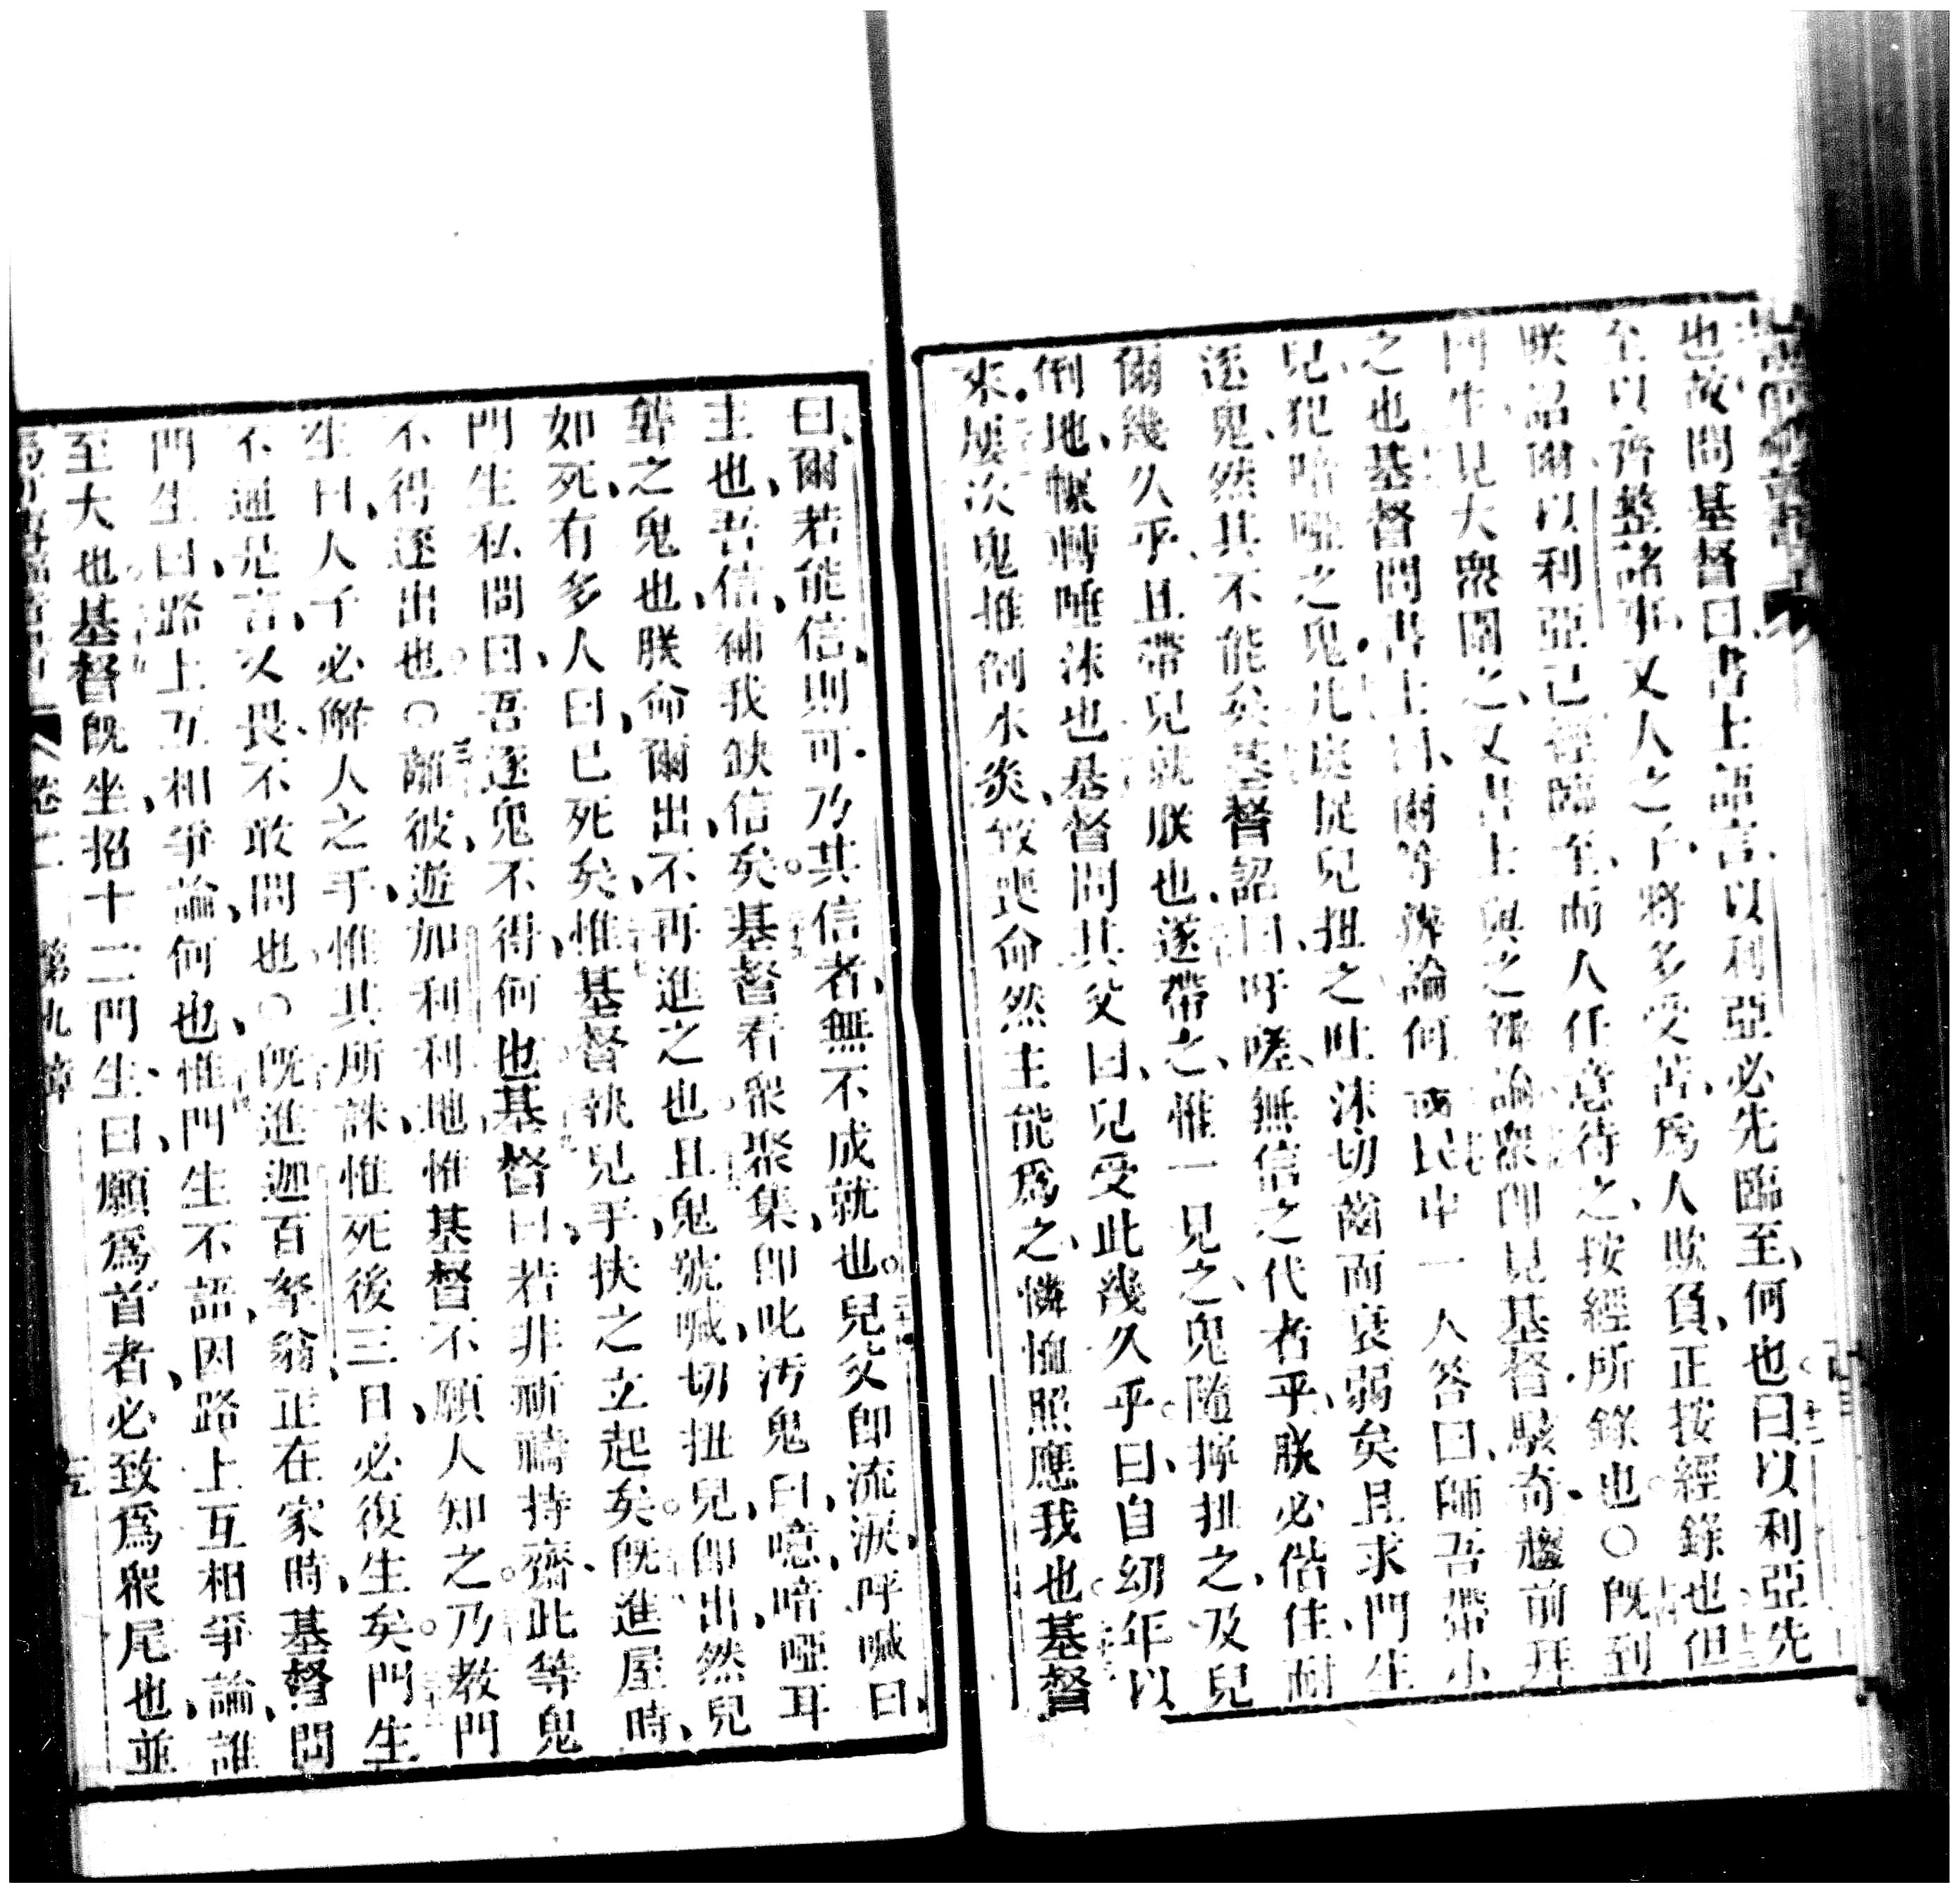 也故問基督曰書士語言以利亞必先臨至何也曰以利亞先
至以齊整諸事又人之子將多受苦為人欺負正按經錄也但
朕詔爾以利亞已經臨至而人任意待之按經所錄也○既到
門生見大眾圍之又書士與之辨論眾即見基督駭奇趨前拜
之也基督問書士曰爾等辨論何或民中一人答曰師吾帶小
兒犯喑啞之鬼凡處捉兒扭之吐沫切齒而衰弱矣且求門生
逐鬼然其不能矣基督詔曰呼嗟無信之代者乎朕必偕住耐
爾幾久乎且帶兒就朕也遂帶之惟一見之鬼隨擰扭之及兒
倒地輾轉唾沫也基督問其父曰兒受此幾久乎曰自幼年以
來屢次鬼推倒水炎致喪命然主能為之憐恤照應我也基督
曰爾若能信則可乃其信者無不成就也兒父即流淚呼喊曰
主也吾信補我缺信矣基督看眾聚集即叱汚鬼曰噫喑啞耳
聾之鬼也朕命爾出不再進之也且鬼號喊切扭兒即出然兒
如死有多人曰已死矣惟基督執兒手扶之立起矣既進屋時
門生私問曰吾逐鬼不得何也基督曰若非祈禱持齋此等鬼
不得逐出也○離彼遊加利利地惟基督不願人知之乃教門
生曰人子必解人之手惟其所誅惟死後三日必復生矣門生
不通是言又畏不敢問也○既進迦百拏翁正在家時基督問
門生曰路上互相爭論何也惟門生不語因路上互相爭論誰
至大也基督既坐招十二門生曰願為首者必致為眾尾也並
第九章